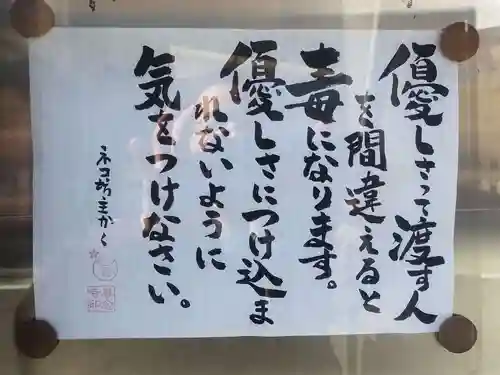 優しさって渡す人
を間違えると
毒になります。
優しさにつけ込ま
れないように
気をつけなさい。
ネコ坊主かく